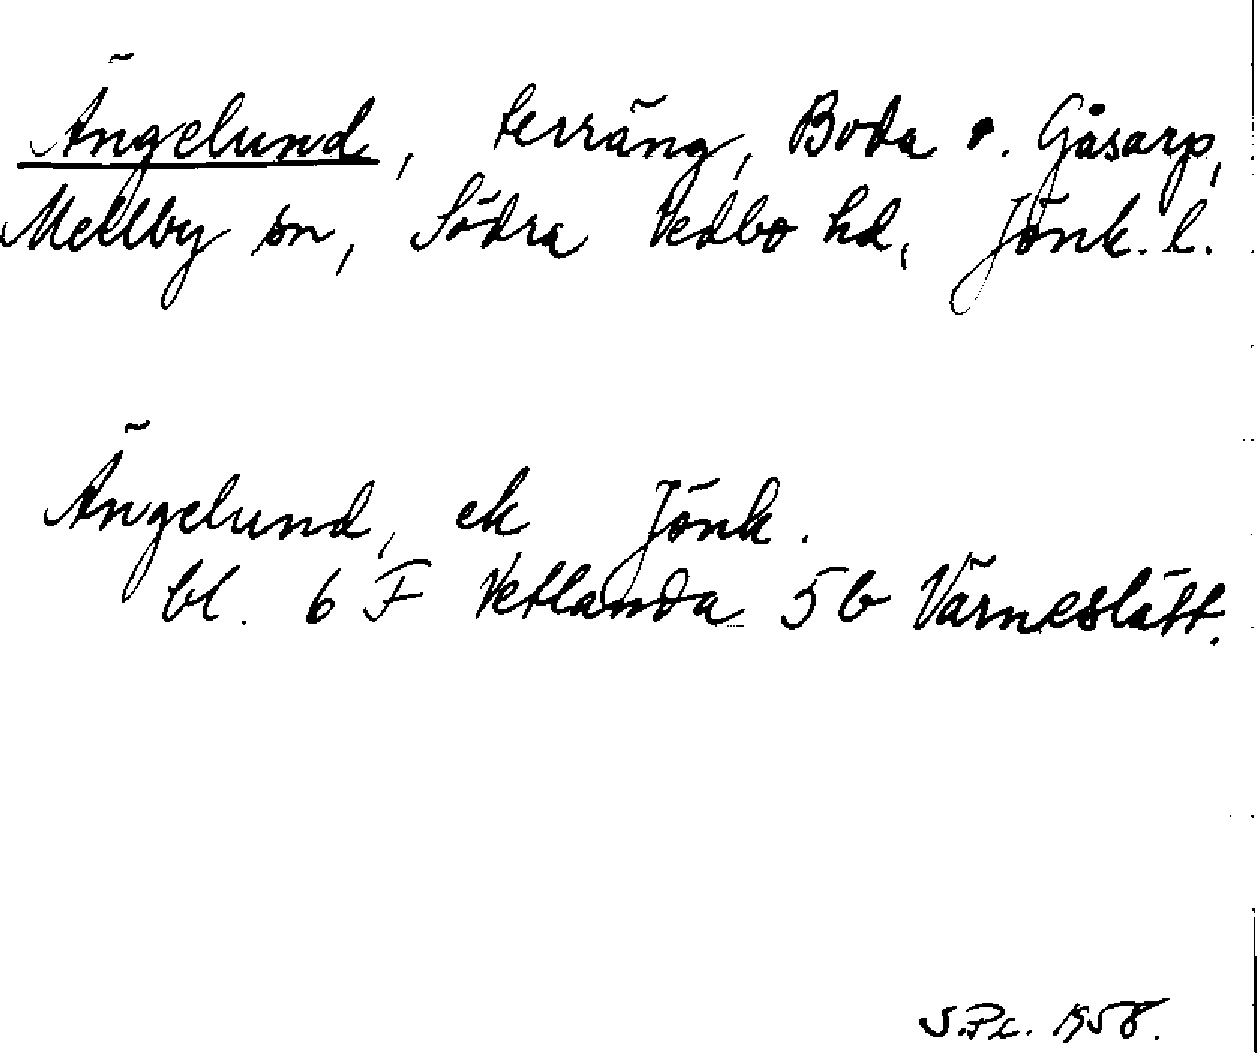 Ängelund, terräng, Boda o. Gåsarp,
Mellby sn, Södra Vedbo hd, Jönk. l.
Ängelund, ek Jönk.
bl. 6 F Vetlanda 5b Värneslätt.
1958.